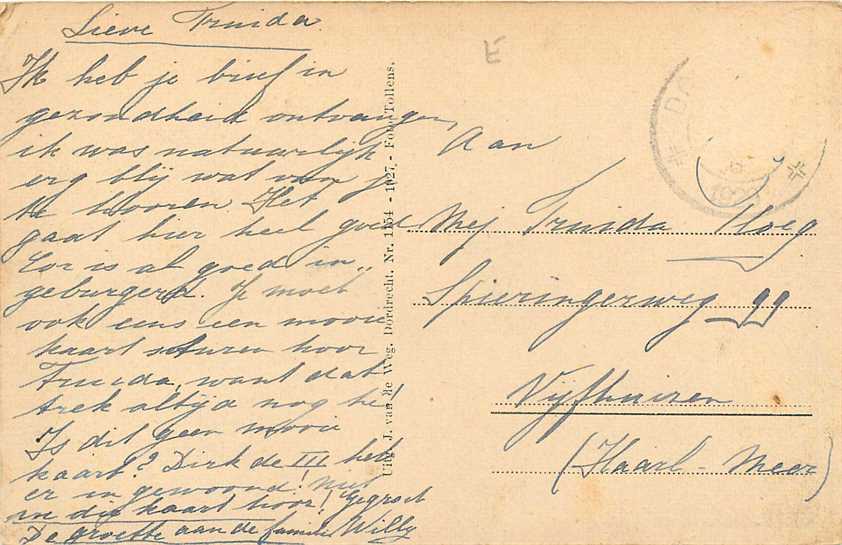 Lieve Truida
Ik heb je brief in
gezondheid ontvangen,
ik was natuurlijk
erg blij wat van je
te hooren Het
gaat hier heel goed
Cor is al goed in„
geburgerd. Je moet
ook eens een mooie
kaart sturen hoor
Truida, want dat
trek altijd nog he!
Is dit geen mooie
kaart? Dirk de III heb
er in gewoond! niet
in die kaart hoor! gegroet
De groette aan de familie Willy
Uitg. J. van de Weg, Dordrecht. Nr. 1154 - 1927. - Foto Tollens.
E
Aan
Mej Truida Ploeg
Spieringerweg 99
Vijfhuizen
(Haarl - Meer)